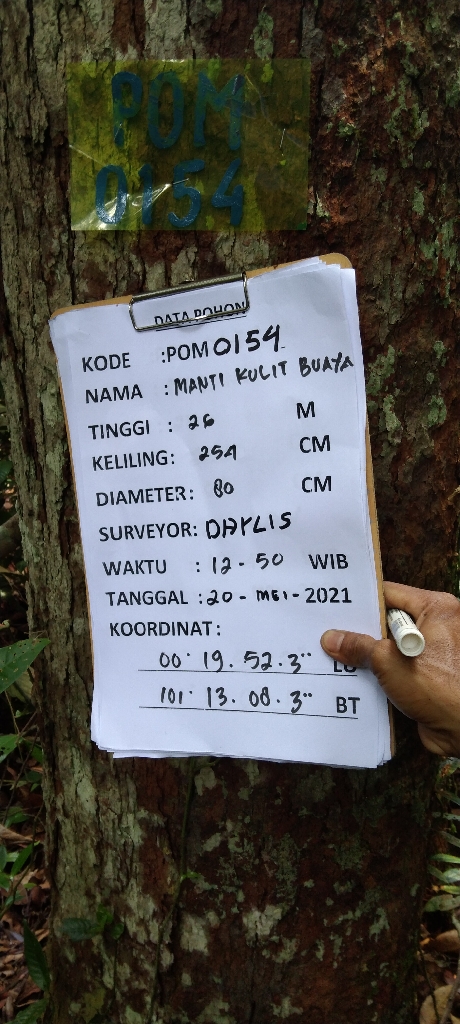 POM
0154
DATA POHON
KODE :POM 0154
NAMA : MANTI KULIT BUAYA
TINGGI : 26 M
KELILING: 254 CM
DIAMETER: 80 CM
SURVEYOR: DAYLIS
WAKTU : 12-50 WIB
TANGGAL :20-MEI-2021
KOORDINAT:
00° 19. 52.3" LU
101° 13. 08. 3" BT